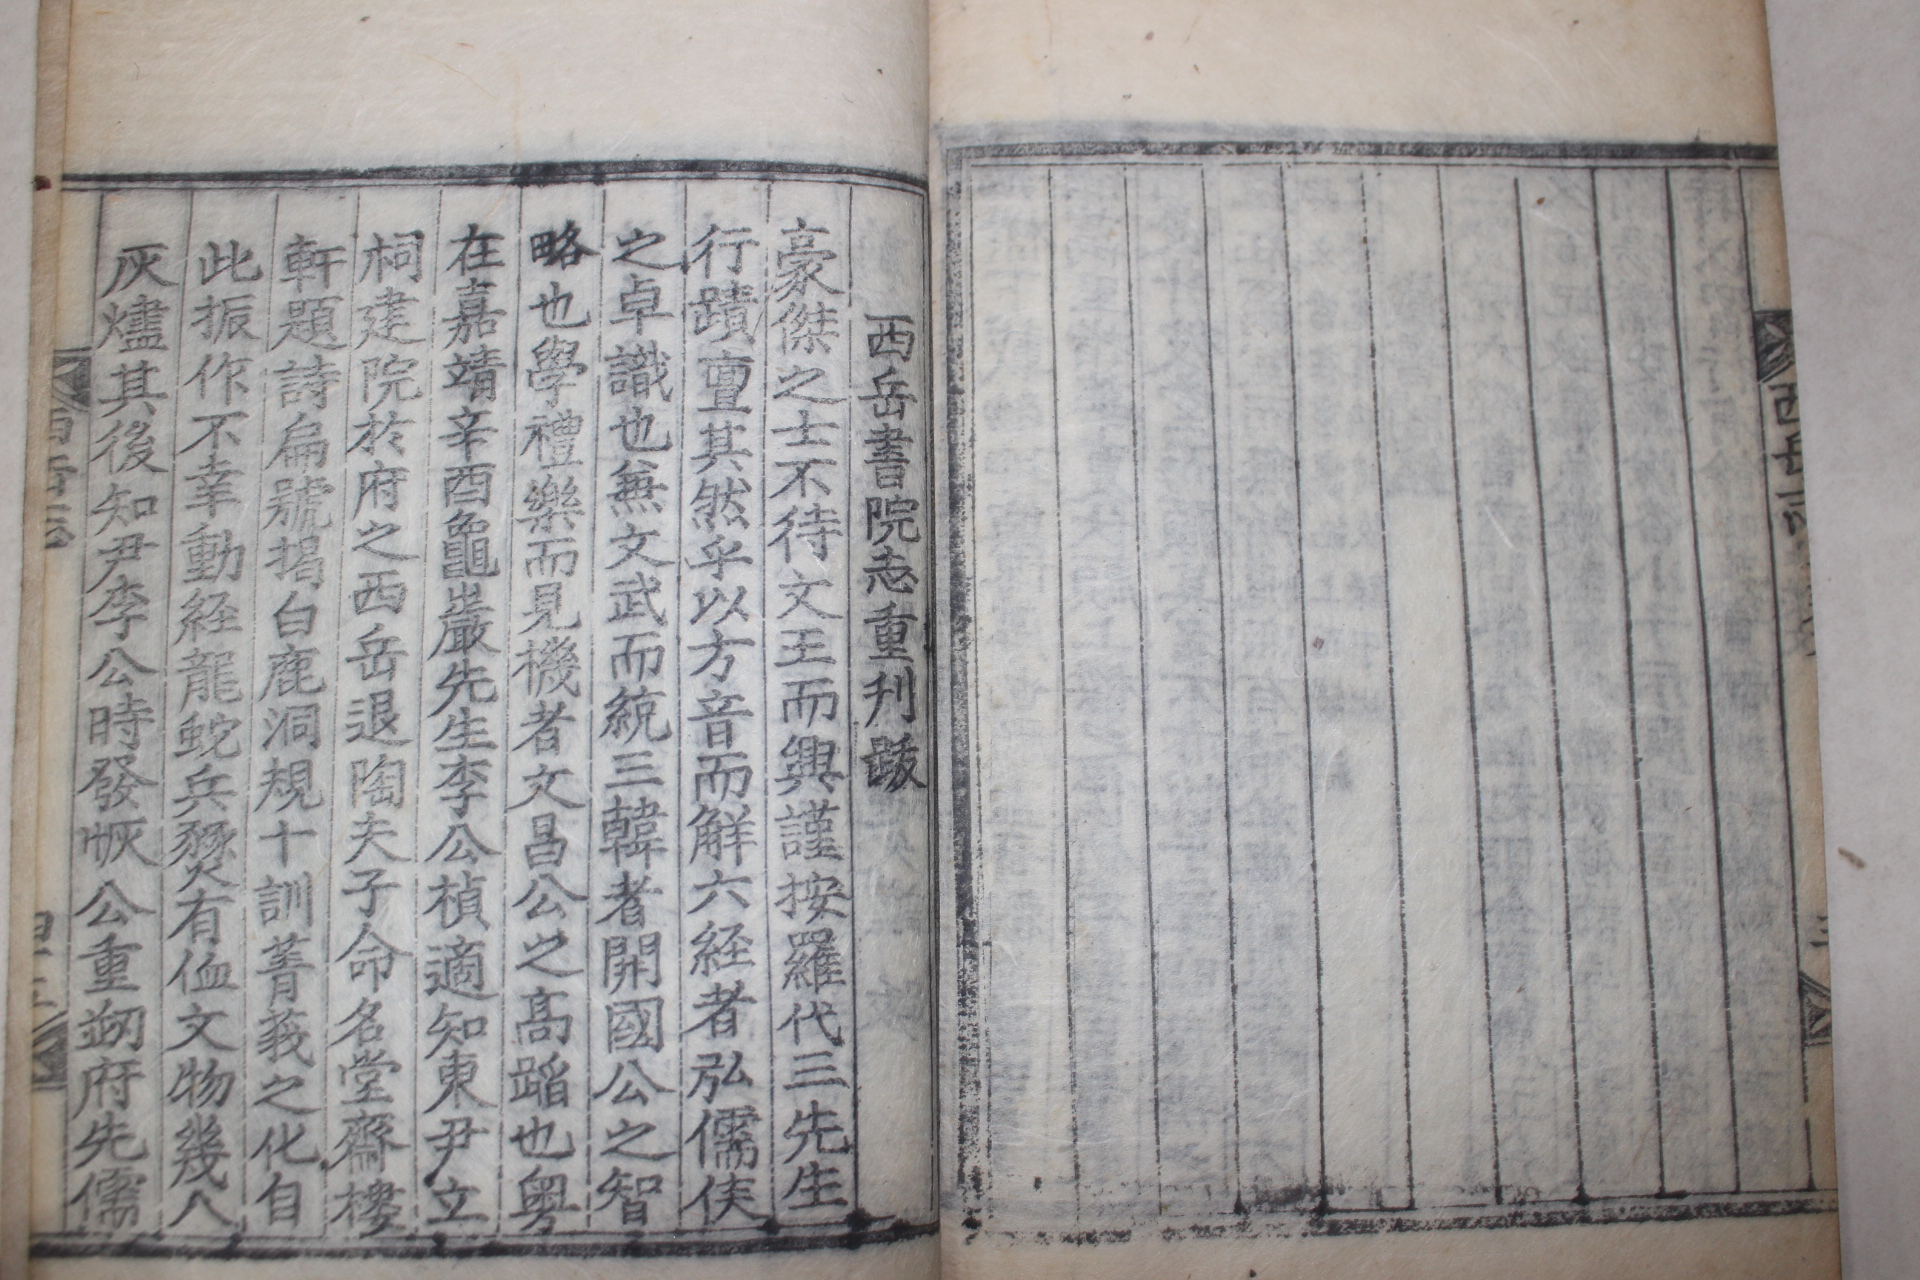 西岳書院志重刋跋
豪傑之士不待文王而興謹按羅代三先生
行蹟亶其然乎以方音而解六経者弘儒侯
之卓識也兼文武而統三韓者開國公之智
略也學禮樂而見機者文昌公之高蹈也粤
在嘉靖辛酉龜巖先生李公楨適知東尹立
祠建院於府之西岳退陶夫子命名堂齋樓
軒題詩扁號揭白鹿洞規十訓菁莪之化自
此振作不幸動経龍蛇兵燹有侐文物幾入
灰燼其後知尹李公時發恢公重刱府先儒